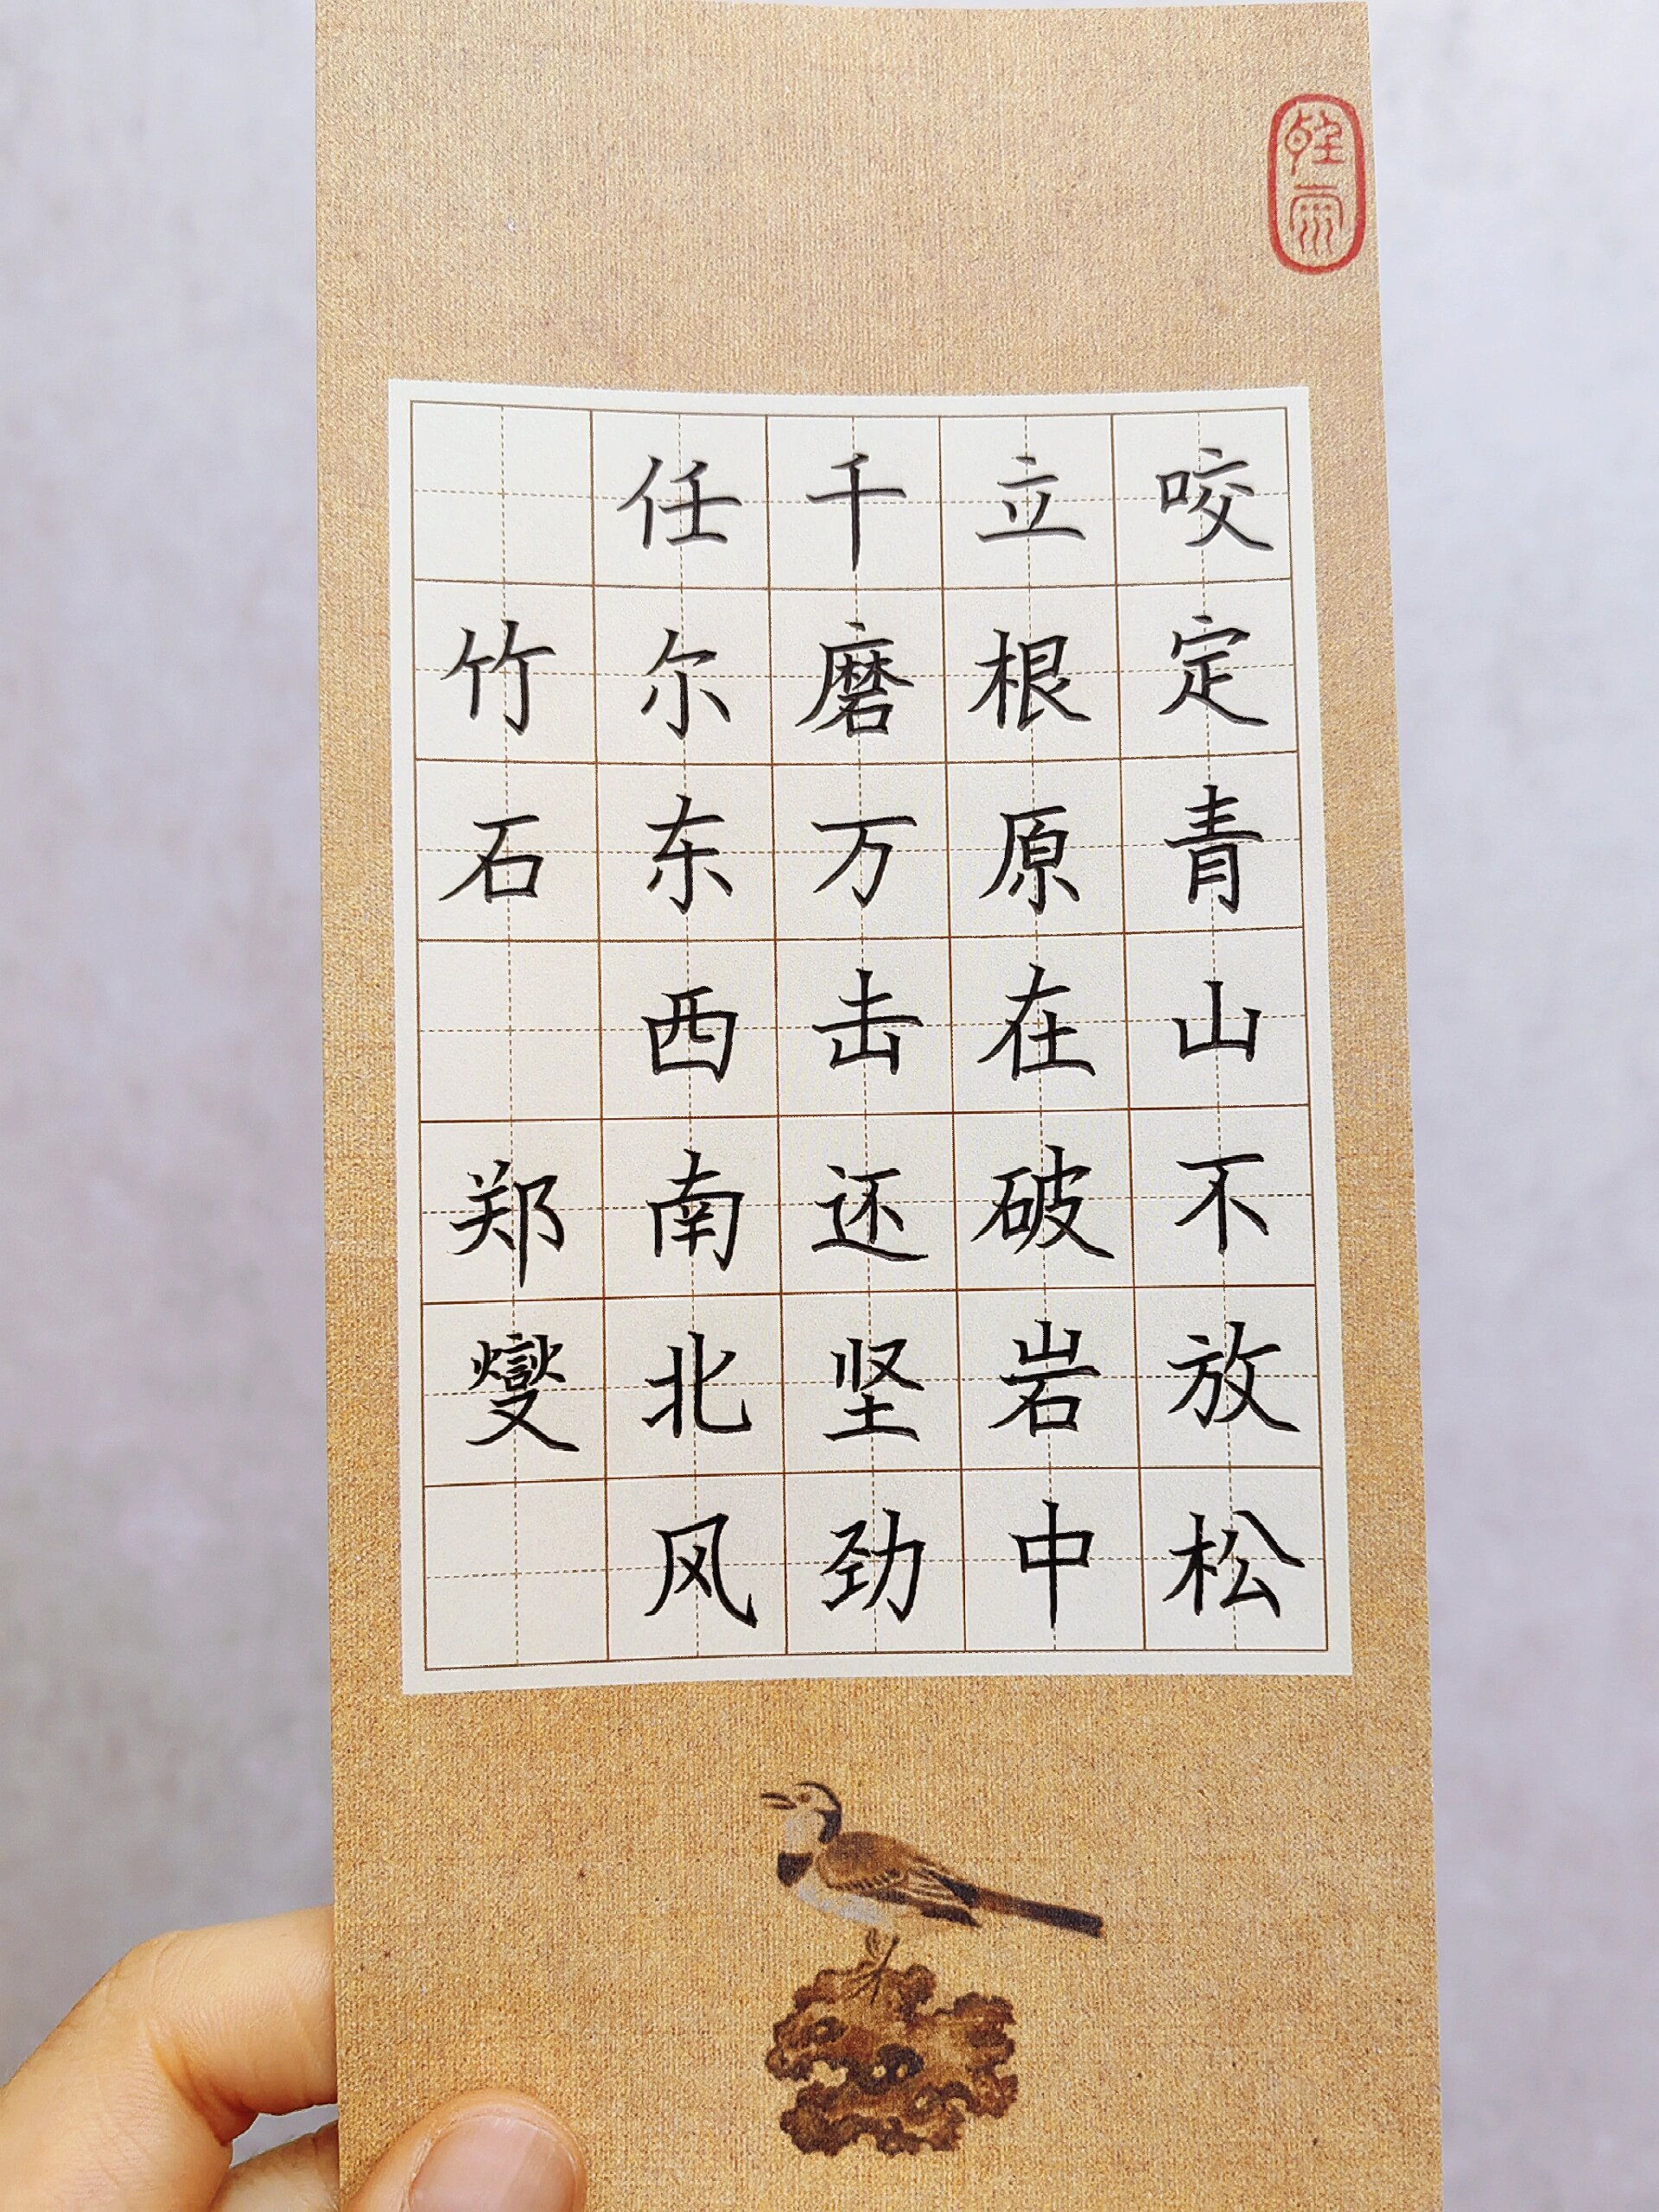 咬定青山不放松
立根原在破岩中
千磨万击还坚劲
任尔东西南北风
竹石 郑燮